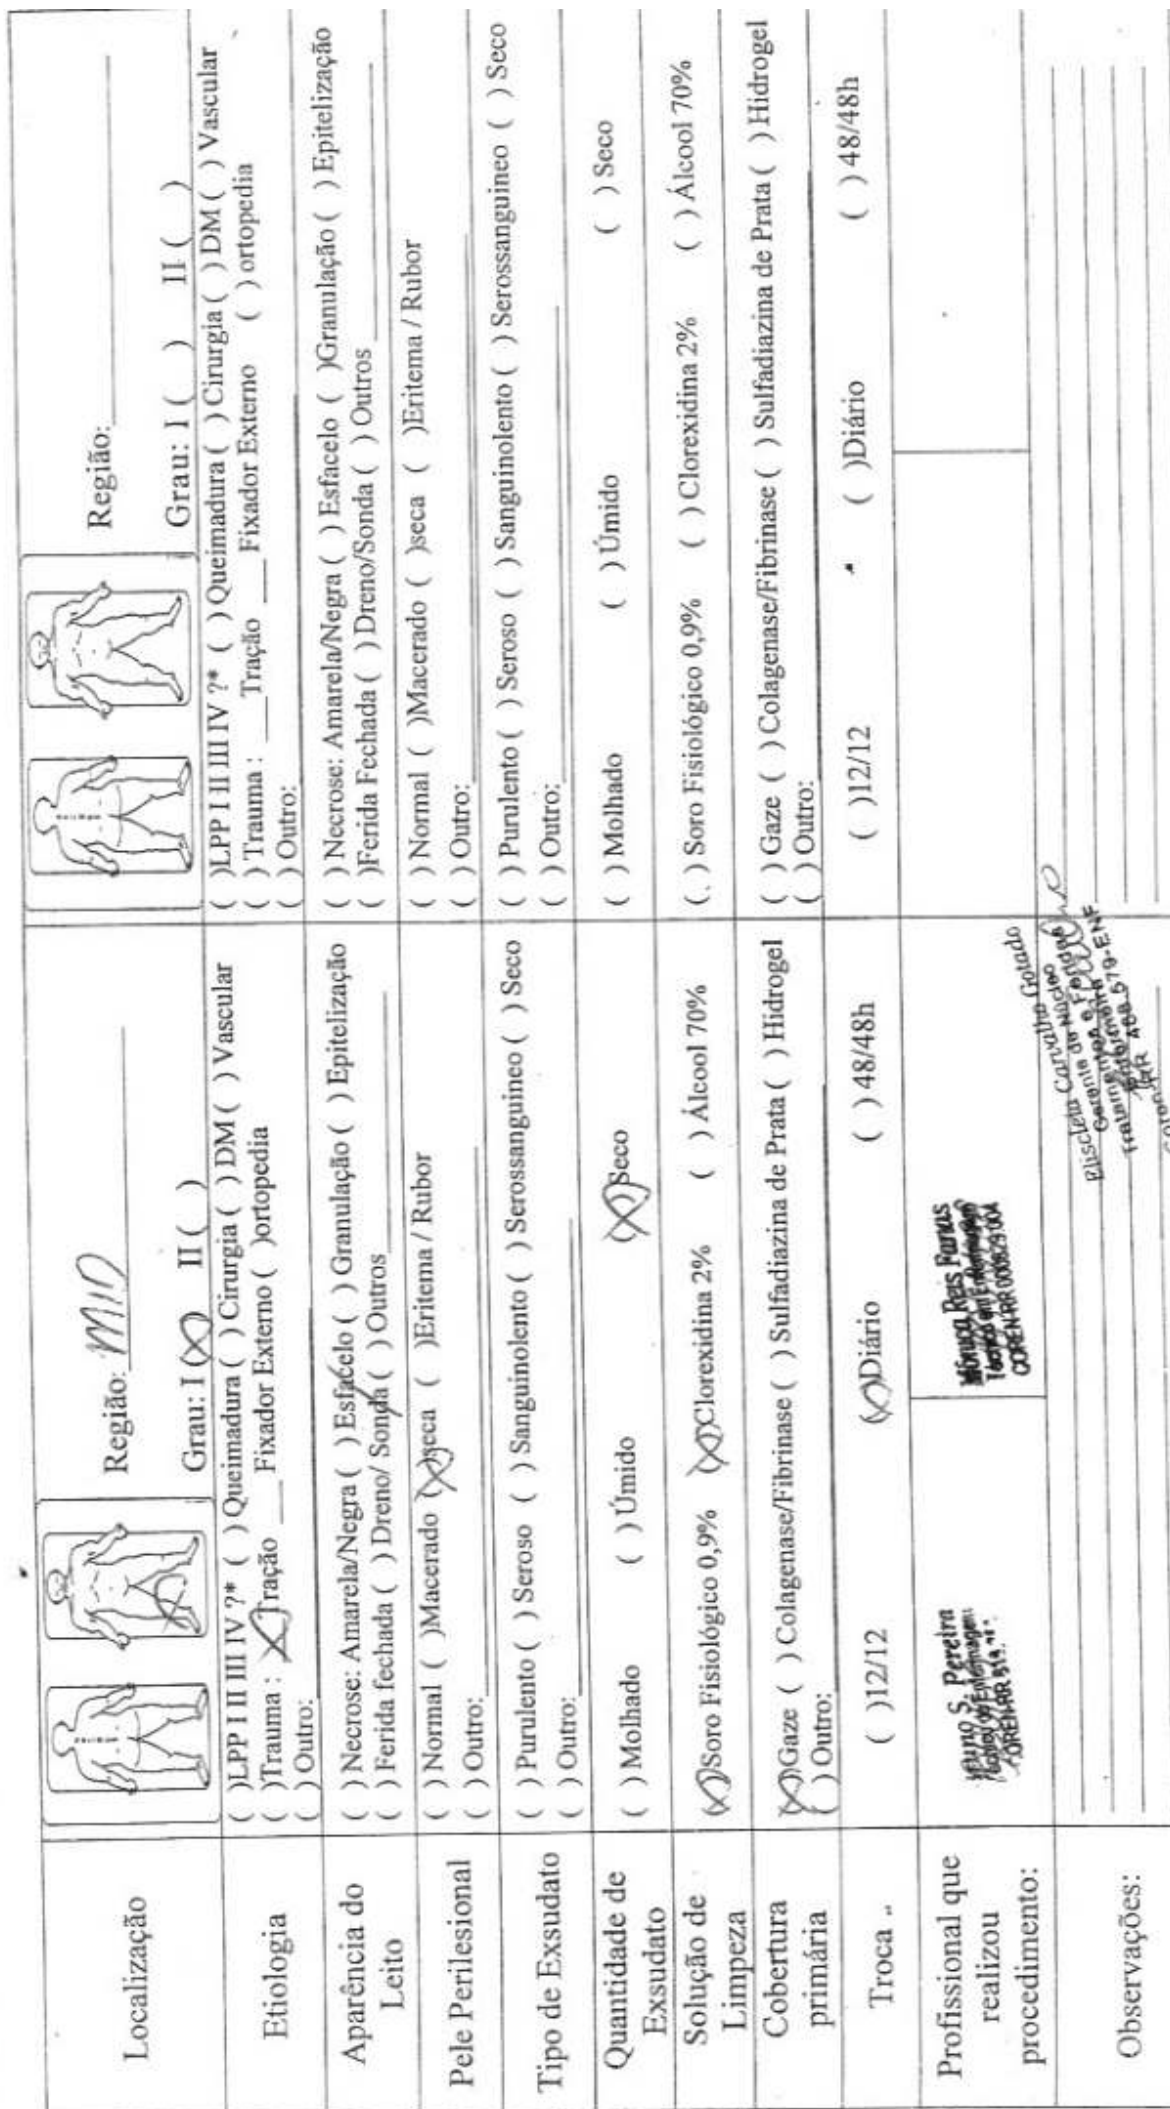 Localização
Região: MID
Grau: I (X) II ( )
Região:
Grau: I ( ) II ( )
Etiologia
( )LPP I II III IV ?* ( ) Queimadura ( ) Cirurgia ( ) DM ( ) Vascular
( )Trauma : X Tração ___ Fixador Externo ( )ortopedia
( ) Outro:
( )LPP I II III IV ?* ( ) Queimadura ( ) Cirurgia ( ) DM ( ) Vascular
( ) Trauma : ___Tração ___ Fixador Externo ( ) ortopedia
( ) Outro:
Aparência do
Leito
( ) Necrose: Amarela/Negra ( ) Esfacelo ( ) Granulação ( ) Epitelização
( ) Ferida fechada ( ) Dreno/ Sonda ( ) Outros
( ) Necrose: Amarela/Negra ( ) Esfacelo ( )Granulação ( ) Epitelização
( )Ferida Fechada ( ) Dreno/Sonda ( ) Outros
Pele Perilesional
( ) Normal ( )Macerado (X)seca ( )Eritema / Rubor
( ) Outro:
( ) Normal ( )Macerado ( )seca ( )Eritema / Rubor
( ) Outro:
Tipo de Exsudato
( ) Purulento ( ) Seroso ( ) Sanguinolento ( ) Serossanguineo ( ) Seco
( ) Outro:
( ) Purulento ( ) Seroso ( ) Sanguinolento ( ) Serossanguineo ( ) Seco
( ) Outro:
Quantidade de
Exsudato
( ) Molhado ( ) Úmido (X) Seco
( ) Molhado ( ) Úmido ( ) Seco
Solução de
Limpeza
(X)Soro Fisiológico 0,9% (X)Clorexidina 2% ( ) Álcool 70%
( ) Soro Fisiológico 0,9% ( ) Clorexidina 2% ( ) Álcool 70%
Cobertura
primária
(X)Gaze ( ) Colagenase/Fibrinase ( ) Sulfadiazina de Prata ( ) Hidrogel
( ) Outro:
( ) Gaze ( ) Colagenase/Fibrinase ( ) Sulfadiazina de Prata ( ) Hidrogel
( ) Outro:
Troca
( )12/12 (X)Diário ( ) 48/48h
( )12/12 ( )Diário ( ) 48/48h
Profissional que
realizou
procedimento:
S. Pereira
Reis
COREN-RR
Observações:
Carvalho